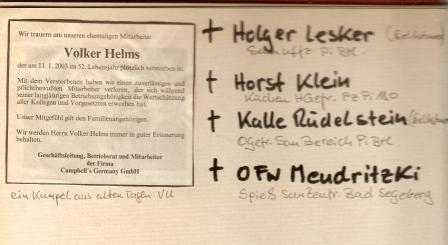 Wir trauern um unseren ehemaligen Mitarbeiter
Volker Helms
der am 11. 1. 2003 im 52. Lebensjahr plötzlich verstorben ist.
Mit dem Verstorbenen haben wir einen zuverlässigen und
pflichtbewußten Mitarbeiter verloren, der sich während
seiner langjährigen Betriebszugehörigkeit die Wertschätzung
aller Kollegen und Vorgesetzten erworben hat.
Unser Mitgefühl gilt den Familienangehörigen.
Wir werden Herrn Volker Helms immer in guter Erinnerung
behalten.
Geschäftsleitung, Betriebsrat und Mitarbeiter
der Firma
Campbell's Germany GmbH
ein Kumpel aus alten Tagen VU
+ Holger Lesker
+ Horst Klein
Küchen HGefr. PzPiMO
+ Kalle Rüdelstein
OGefr. San Bereich Pi Btl
+ OFW Mendritzki
Spieß SanZentr. Bad Segeberg